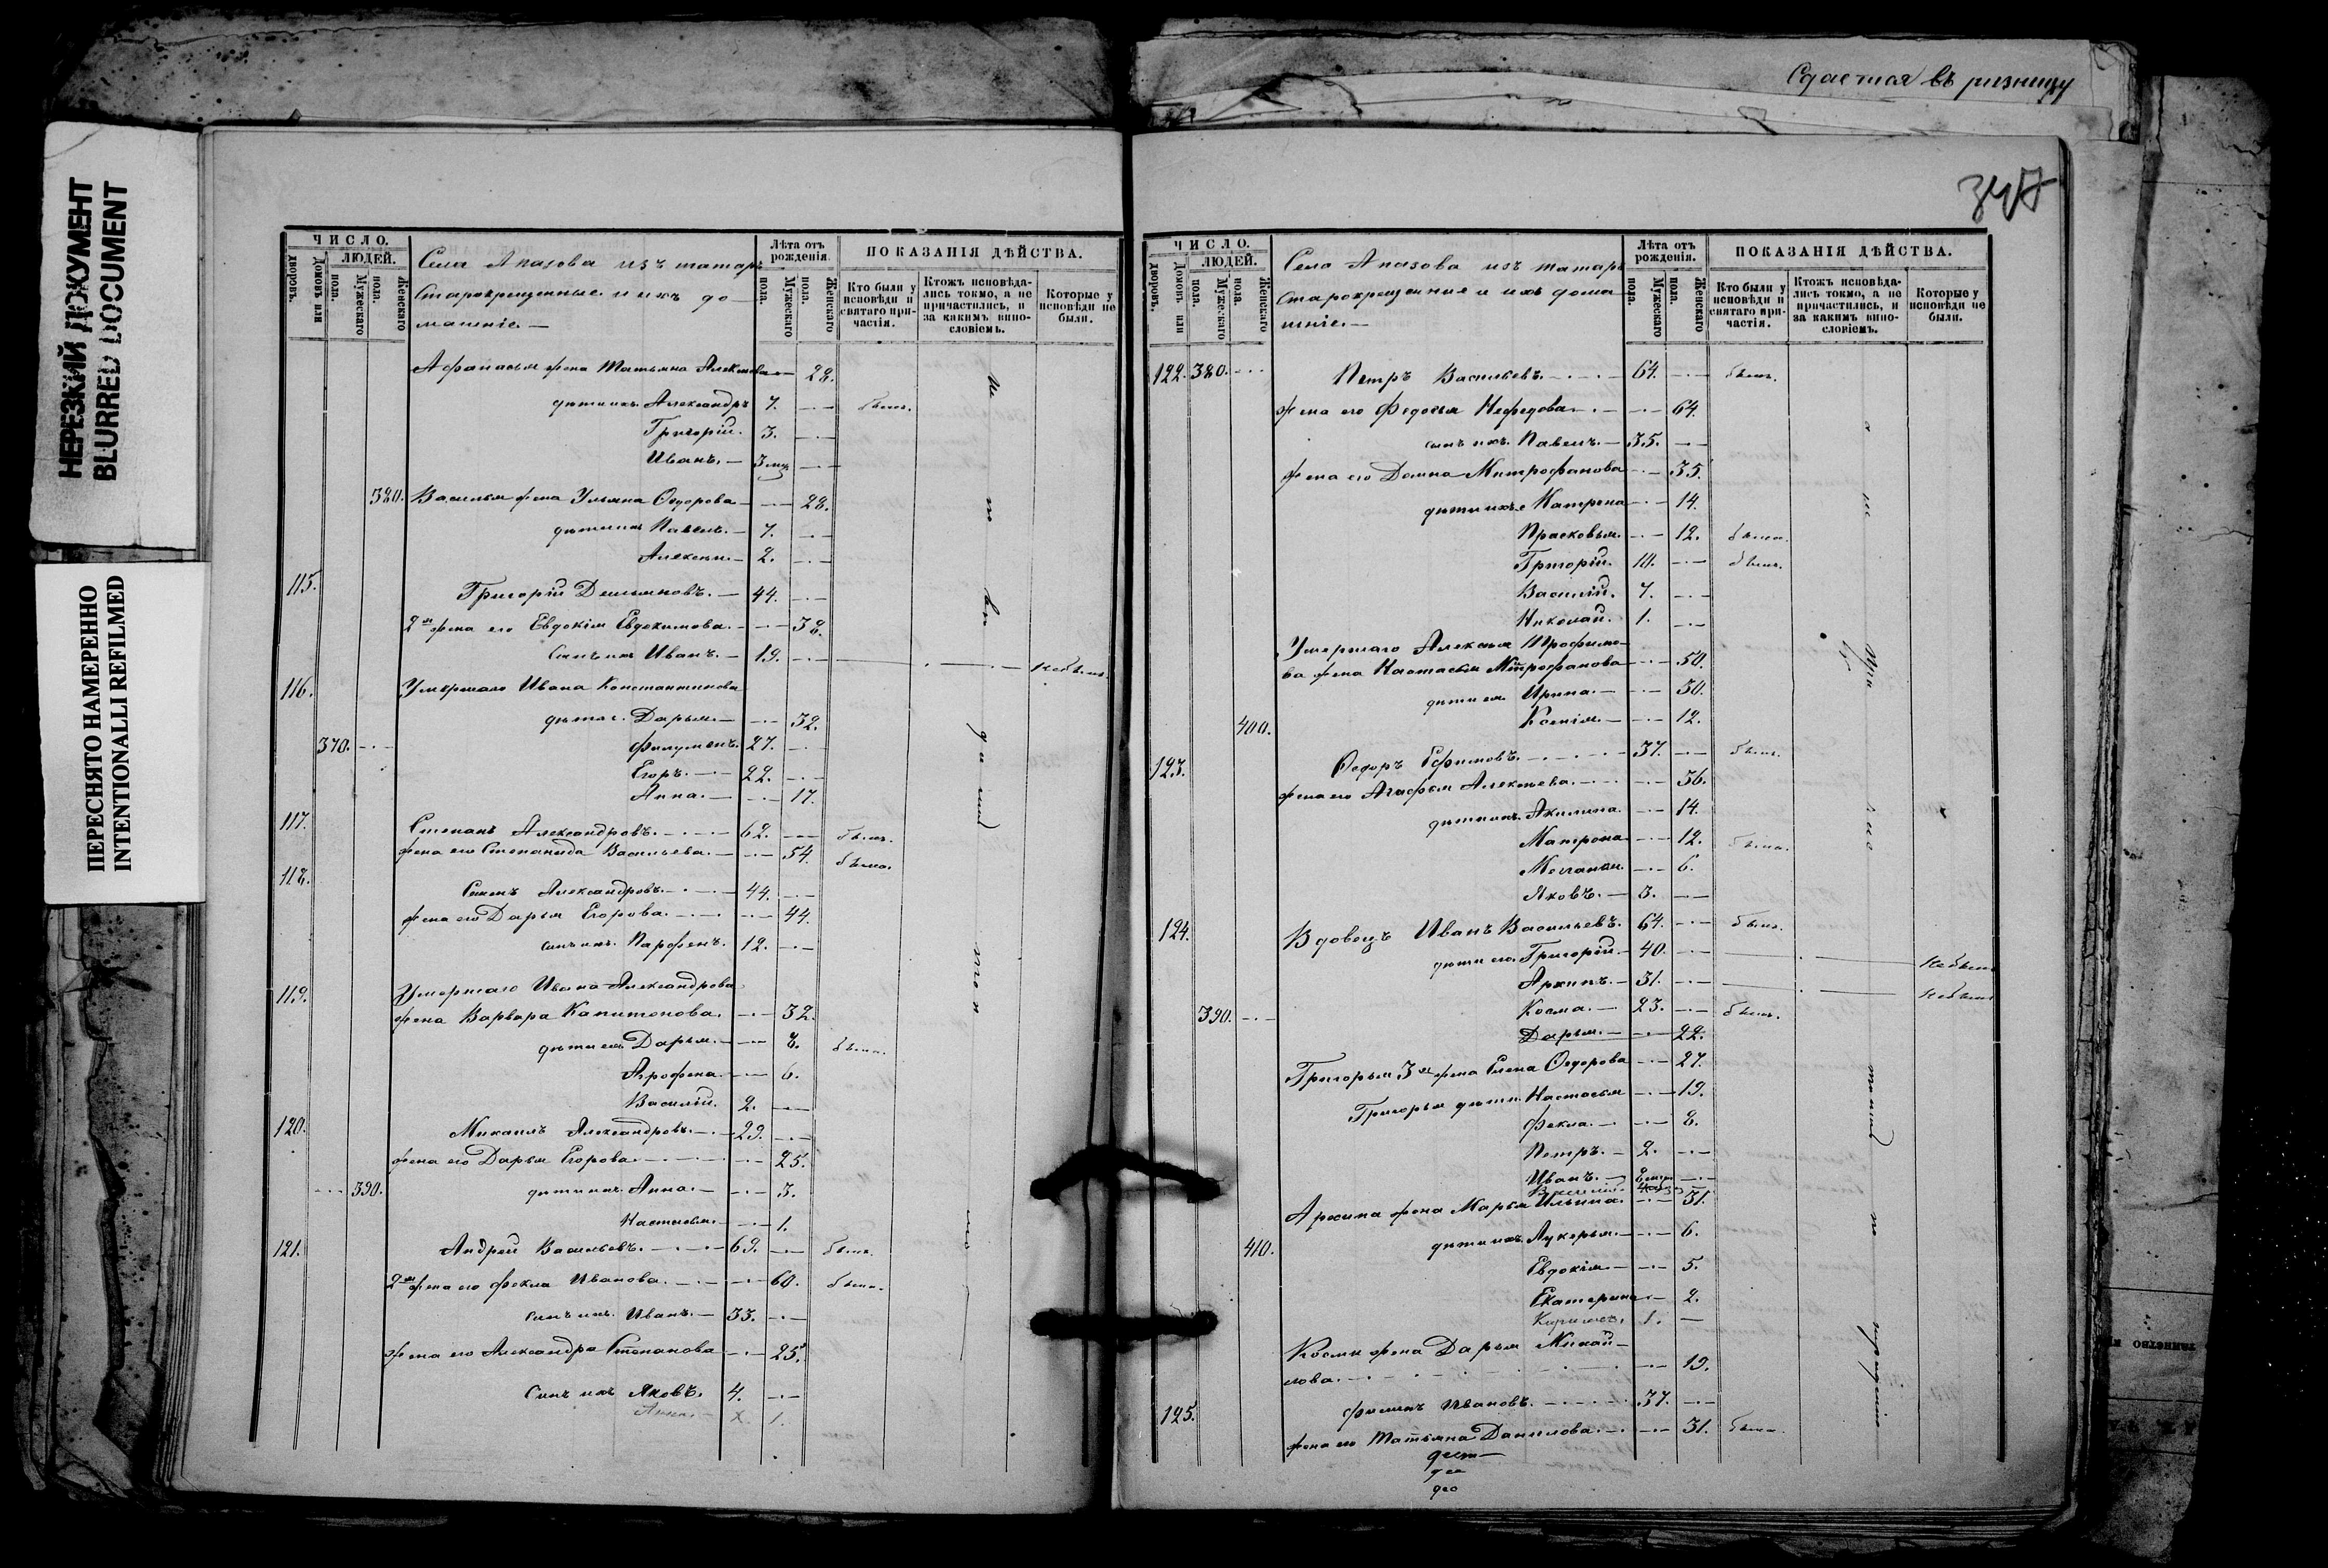 НЕРЕЗКИЙ ДОКУМЕНТ
BLURRED DOCUMENT
ПЕРЕСНЯТО НАМЕРЕННО
INTENTIONALLI REFILMED
Сдается въ ризницу
347
ЧИСЛО.
ЛЮДЕЙ.
Дворовъ.
Домовъ или
Мужескаго пола.
Женскаго пола.
Села Апазова изъ татаръ
Старокрещенные и ихъ до-
машніе.—
Лѣта отъ рожденія.
Мужескаго пола.
Женскаго пола.
ПОКАЗАНІЯ ДѢЙСТВА.
Кто были у исповѣди и святаго причастія.
Ктожъ исповѣдались токмо, а не причастились, и за какимъ винословіемъ.
Которые у исповѣди не были.
Афанасья жена Татьяна Алексѣева — 28.
дѣти ихъ Александръ 7. былъ.
Григорій. 3.
Иванъ. — 3 мц.
380. Василья жена Ульяна Ѳедорова — 28.
дѣти ихъ Павелъ. — 7.
Алексѣй. — 2.
115. Григорій Демьяновъ. — 44.
2я жена его Евдокія Евдокимова. 38.
Сынъ ихъ Иванъ. — 19. Небылъ.
116. Умершаго Ивана Константинова
дѣти. Дарья. — 32.
370. Филумонъ. 27.
Егоръ. 22.
Анна. — 17.
117. Степанъ Александровъ. 62. былъ.
жена его Степанида Васильева. — 54. была.
118. Семенъ Александровъ. 44.
жена его Дарья Егорова. 44.
сынъ ихъ Парфенъ. 12.
119. Умершаго Ивана Александрова
жена Варвара Капитонова. 32.
дѣти ея Дарья. 8. была.
Агрофена. 6.
Василій. 2.
120. Михаилъ Александровъ. 29.
жена его Дарья Егорова. 25.
390. дѣти ихъ Анна. — 3.
Настасья. 1.
121. Андрей Васильевъ. 69. былъ.
2я жена его Фекла Иванова. 60. была.
сынъ ихъ. Иванъ. — 33.
жена его Александра Степанова 25.
Сынъ ихъ Яковъ. 4.
Анна. — 1.
ЧИСЛО.
ЛЮДЕЙ.
Дворовъ.
Домовъ или
Мужескаго пола.
Женскаго пола.
Села Апазова изъ татаръ
Старокрещенные и ихъ дома-
шніе.—
Лѣта отъ рожденія.
Мужескаго пола.
Женскаго пола.
ПОКАЗАНІЯ ДѢЙСТВА.
Кто были у исповѣди и святаго причастія.
Ктожъ исповѣдались токмо, а не причастились, и за какимъ винословіемъ.
Которые у исповѣди не были.
122. 380. Петръ Васильевъ. 64. былъ.
жена его Федосья Нефедова. 64.
сынъ ихъ. Павелъ. — 35.
жена его Домна Митрофанова 35.
дѣти ихъ Матрена 14.
Прасковья. 12. была.
Григорій. 10. былъ.
Василій. 7.
Николай. 1.
Умершаго Алексѣя Трофимо-
ва жена Настасья Митрофанова 50.
дѣти ея Ирина. — 30.
400. Ксенія. — 12.
123. Ѳедоръ Ефимовъ. 37. былъ.
жена его Агафья Алексѣева. 36.
дѣти ихъ Акилина. 14.
Матрона 12. была.
6.
Яковъ. — 3.
124. Вдовецъ Иванъ Васильевъ. 64. былъ.
дѣти его. Григорій. — 40. Небылъ
Архипъ. — 31. Небылъ
390. Косма. — 23. былъ.
Дарья. 22.
Григорья 3я жена Елена Ѳедорова 27.
Григорья дѣти. Настасья 19.
Фекла. 8.
Петръ. — 2.
Иванъ.
Архипа жена Марья Ильина. 31.
410. дѣти ихъ Лукерья. 6.
Евдокія 5.
Екатерина 2.
Кирилъ. 1.
Космы жена Дарья Михай-
лова. 19.
125. Филипъ Ивановъ. 37.
жена его Татьяна Данилова. 31. была.